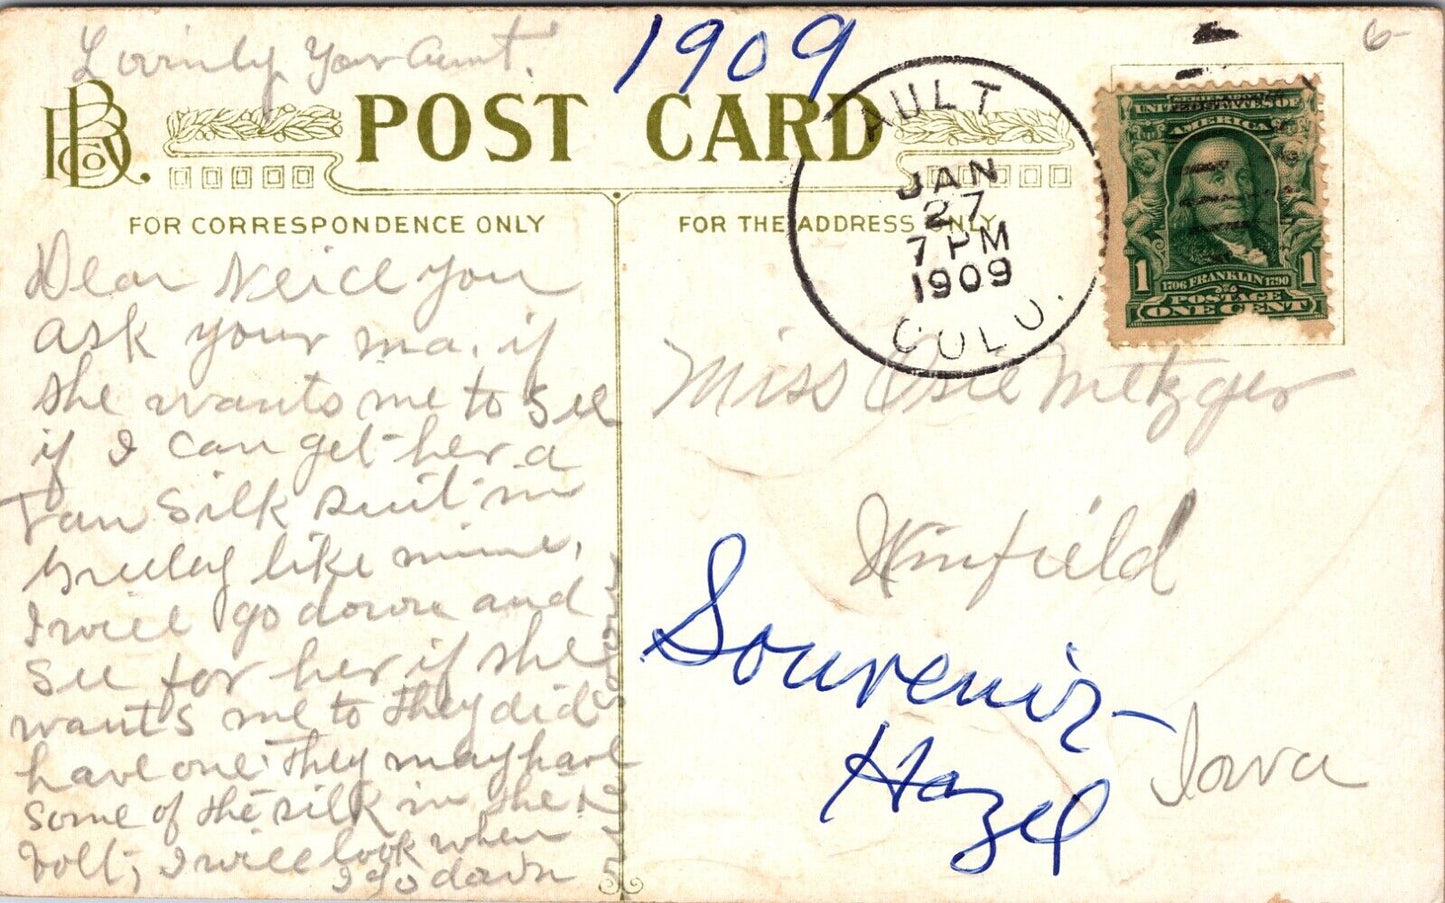 Lovinly Your Aunt.
1909
6-
BB Co.
POST CARD
AULT
JAN
27
7 PM
1909
COLO.
SERIES 1902
UNITED STATES OF
AMERICA
1 1
1706 FRANKLIN 1790
POSTAGE
ONE CENT
FOR CORRESPONDENCE ONLY
FOR THE ADDRESS ONLY
Dear Neice you
ask your ma. if
she wants me to see
if I can get her a
Tan Silk suit in
Greeley like mine,
I will go down and
see for her if she
wants me to they did
have one. They may have
some of the silk in the
bolt; I will look when
I go down
Miss Osie Metzger
Winfield
Iowa
Souvenir-
Hazel